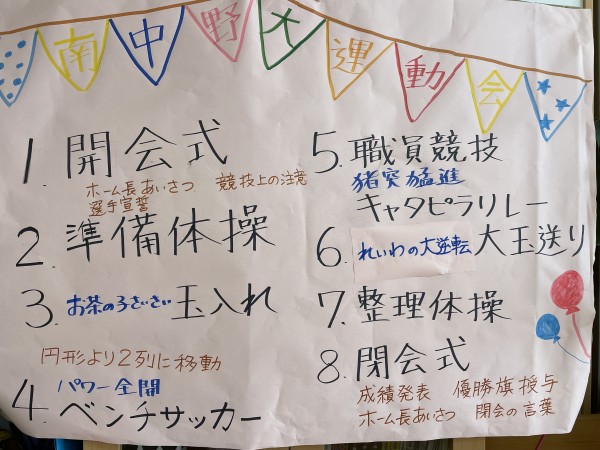 南中野大運動会
1. 開会式
ホーム長あいさつ 競技上の注意
選手宣誓
2. 準備体操
3. お茶の子さいさい 玉入れ
円形より2列に移動
4. パワー全開
ベンチサッカー
5. 職員競技
猪突猛進
キャタピラリレー
6. れいわの大逆転 大玉送り
7. 整理体操
8. 閉会式
成績発表 優勝旗授与
ホーム長あいさつ 閉会の言葉